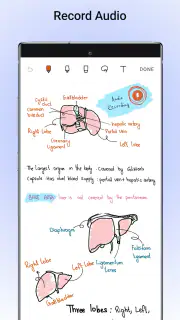 Record Audio
DONE
Gallbladder
Cystic duct
Common bileduct
Audio Recording
Hepatic artery
Portal vein
Right Lobe
Coronary Ligament
Left Lobe
The Largest organ in the body. Covered by Glisson's
Capsule. Has dual blood supply: portal vein & hepatic artery.
BARE AREA: Area is not covered by the peritoneum
Diaphragm
Falciform Ligament
Right Lobe
Left Lobe
Ligamentum Teres
Gallbladder
Three lobes: Right, Left,